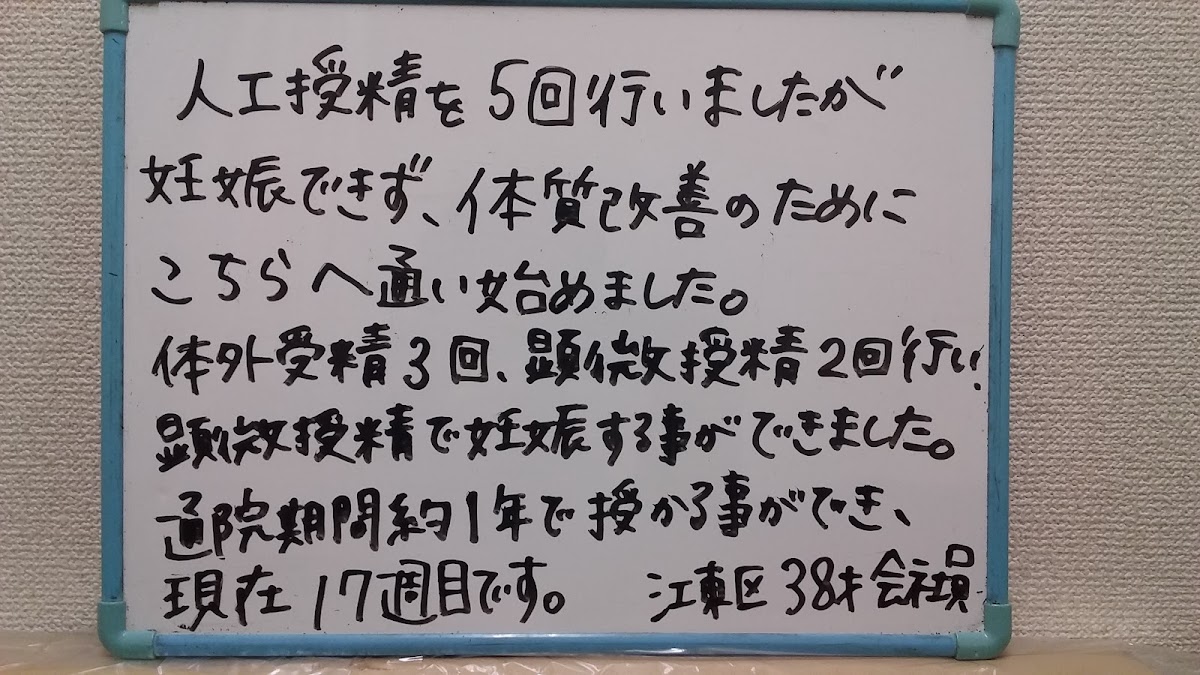 人工授精を5回行いましたが
妊娠できず、体質改善のために
こちらへ通い始めました。
体外受精3回、顕微授精2回行い、
顕微授精で妊娠する事ができました。
通院期間約1年で授かる事ができ、
現在17週目です。 江東区38才会社員